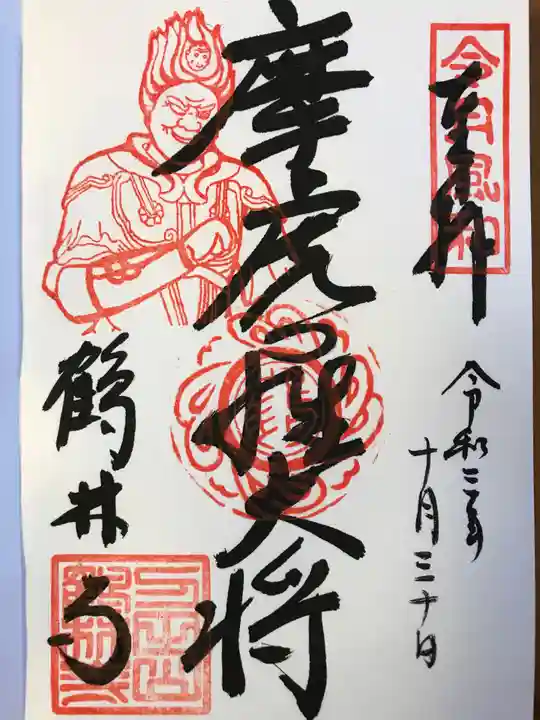 令月風和
奉拝
令和三年
十月三十日
摩虎羅大将
鶴林寺